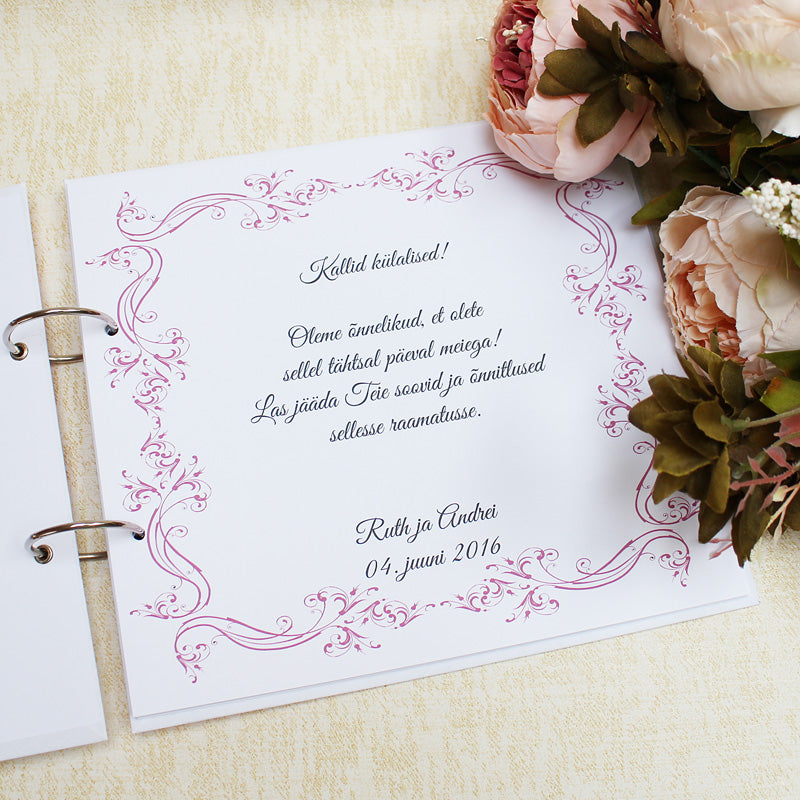 Kallid külalised!
Oleme õnnelikud, et olete
sellel tähtsal päeval meiega!
Las jääda Teie soovid ja õnnitlused
sellesse raamatusse.
Ruth ja Andrei
04. juuni 2016